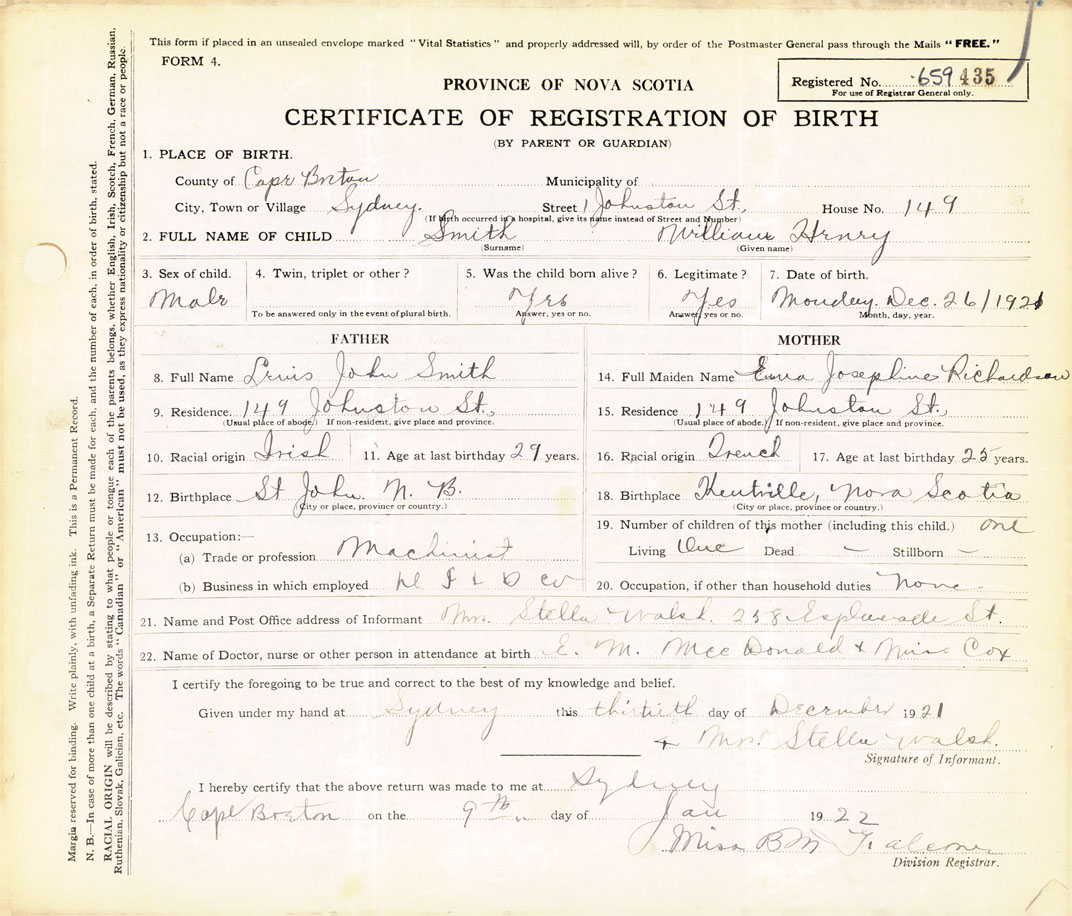 This form if placed in an unsealed envelope marked "Vital Statistics" and properly addressed will, by order of the Postmaster General pass through the Mails "FREE."
FORM 4.
PROVINCE OF NOVA SCOTIA
Registered No. 659435
For use of Registrar General only.
CERTIFICATE OF REGISTRATION OF BIRTH
(BY PARENT OR GUARDIAN)
1. PLACE OF BIRTH.
County of Cape Breton Municipality of
City, Town or Village Sydney. Street Johnston St, House No. 149
(If birth occurred in a hospital, give its name instead of Street and Number)
2. FULL NAME OF CHILD Smith William Henry
(Surname) (Given name)
3. Sex of child. 4. Twin, triplet or other? 5. Was the child born alive? 6. Legitimate? 7. Date of birth.
Male Yes Yes Monday. Dec. 26/1921
To be answered only in the event of plural birth. Answer, yes or no. Answer, yes or no. Month, day, year.
FATHER MOTHER
8. Full Name Lewis John Smith 14. Full Maiden Name Emma Josephine Richardson
9. Residence. 149 Johnston St., 15. Residence 149 Johnston St,
(Usual place of abode.) If non-resident, give place and province. (Usual place of abode.) If non-resident, give place and province.
10. Racial origin Irish 11. Age at last birthday 29 years. 16. Racial origin French 17. Age at last birthday 25 years.
12. Birthplace St John. N. B. 18. Birthplace Kentville, Nova Scotia
(City or place, province or country.) (City or place, province or country.)
13. Occupation:— 19. Number of children of this mother (including this child.) one
(a) Trade or profession Machinist Living One Dead — Stillborn —
(b) Business in which employed Co 20. Occupation, if other than household duties None
21. Name and Post Office address of Informant Mrs. Stella Walsh. 258 Esplanade St.
22. Name of Doctor, nurse or other person in attendance at birth E. M. MacDonald & Miss Cox
I certify the foregoing to be true and correct to the best of my knowledge and belief.
Given under my hand at Sydney this thirtieth day of December 1921
Mrs. Stella Walsh.
Signature of Informant.
I hereby certify that the above return was made to me at Sydney
Cape Breton on the 9th day of Jan 1922
Miss B M
Division Registrar.
Margin reserved for binding. Write plainly, with unfading ink. This is a Permanent Record.
N. B.—In case of more than one child at a birth, a Separate Return must be made for each, and the number of each, in order of birth, stated.
RACIAL ORIGIN will be described by stating to what people or tongue each of the parents belongs, whether English, Irish, Scotch, French, German, Russian,
Ruthenian, Slovak, Galician, etc. The words "Canadian" or "American" must not be used, as they express nationality or citizenship but not a race or people.